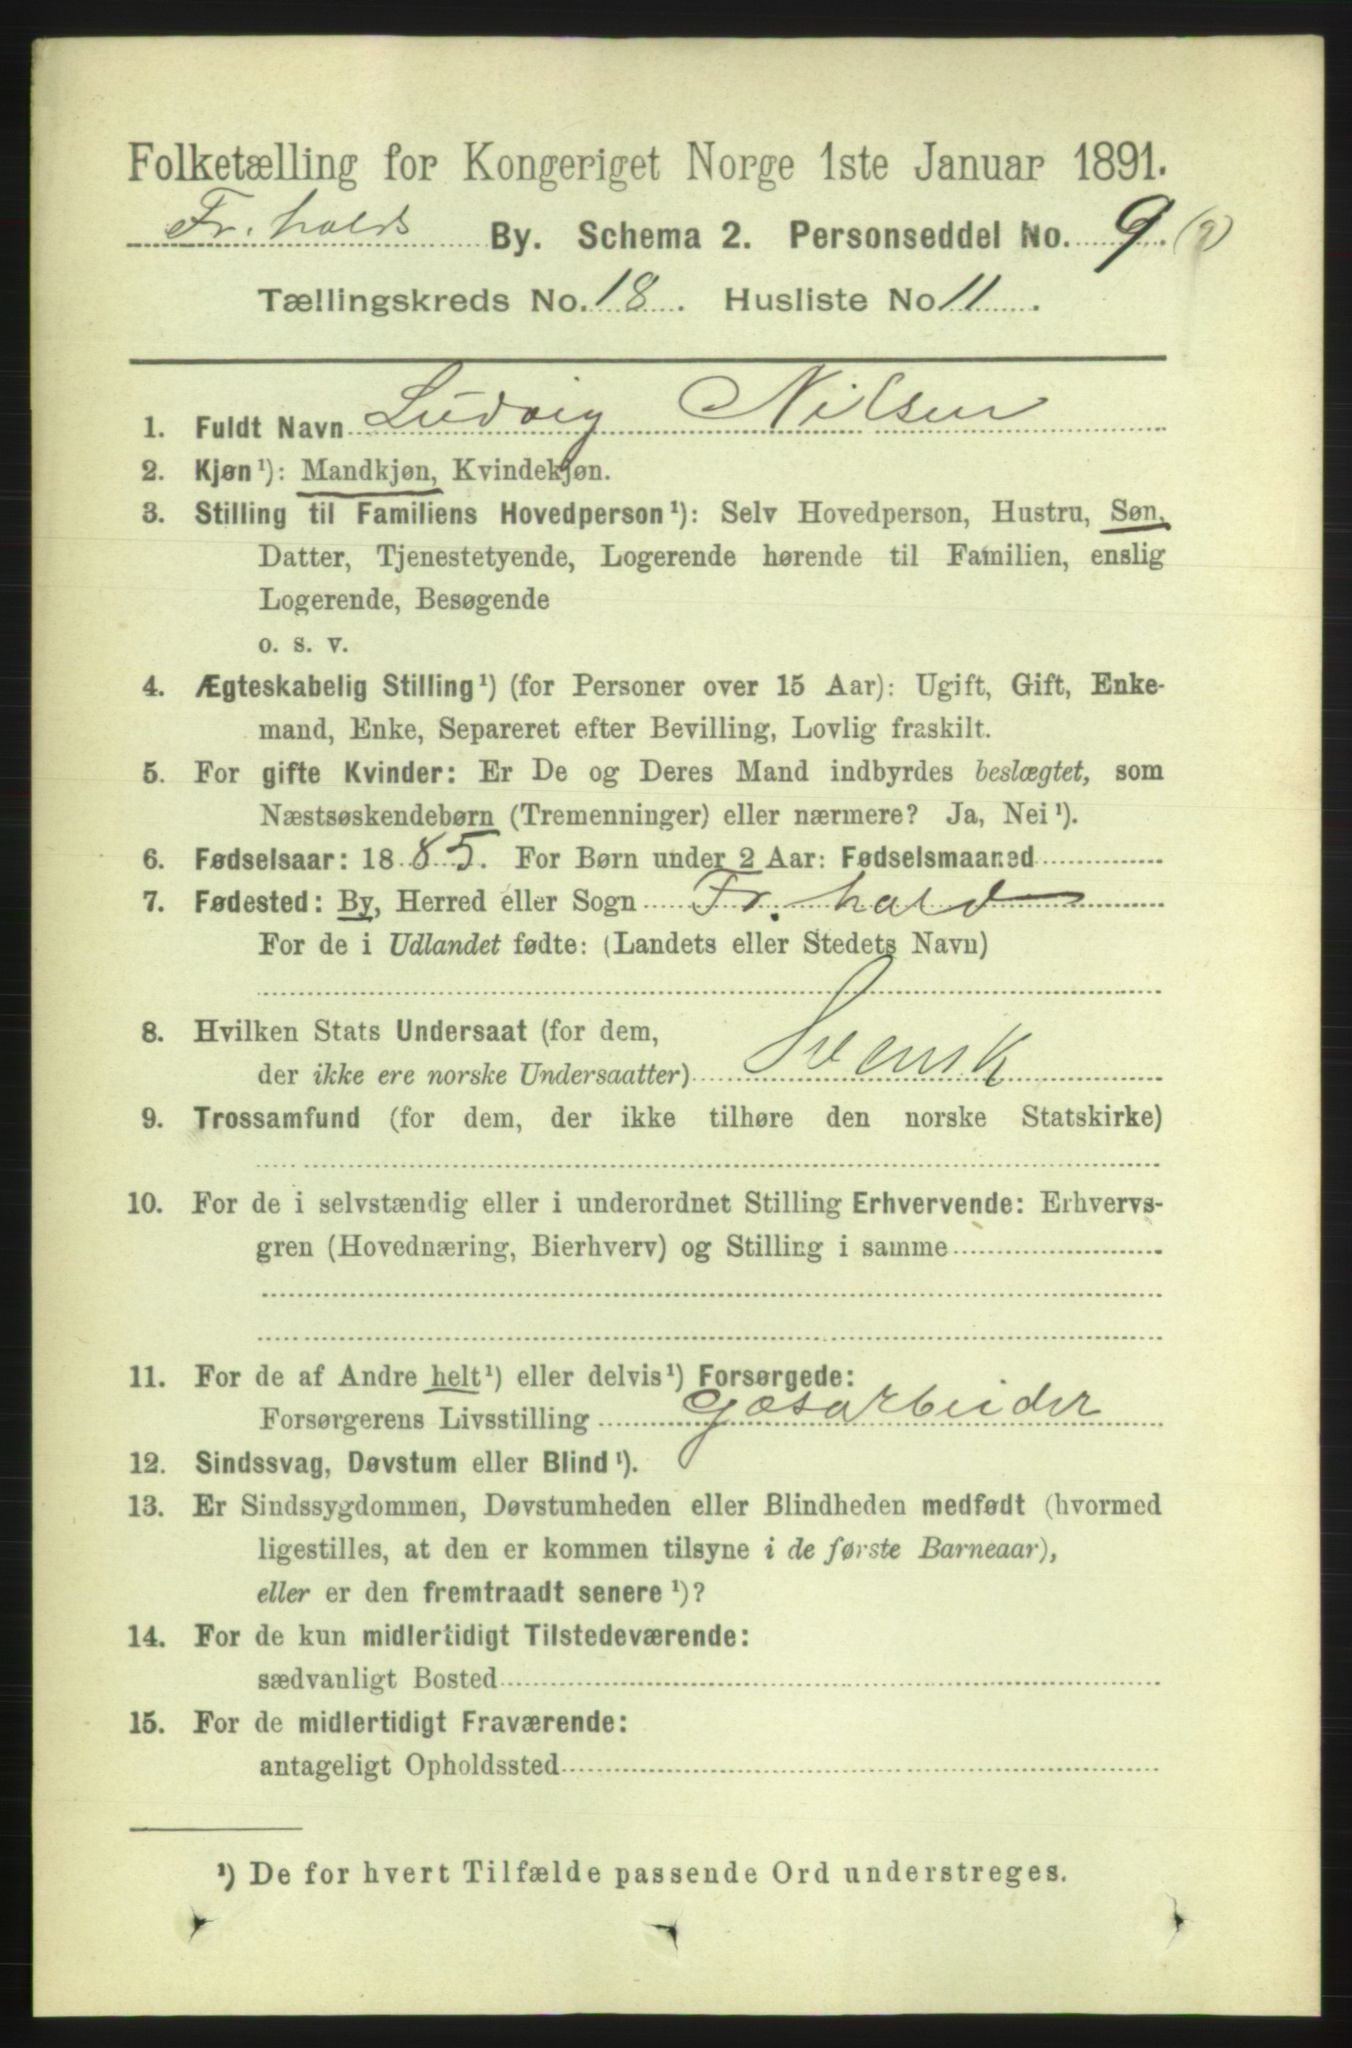 Folketælling for Kongeriget Norge 1ste Januar 1891.
Fr.halds By. Schema 2. Personseddel No. 9 (9)
Tællingskreds No. 18. Husliste No 11.
1. Fuldt Navn Ludvig Nilsen
2. Kjøn¹): Mandkjøn, Kvindekjøn.
3. Stilling til Familiens Hovedperson¹): Selv Hovedperson, Hustru, Søn,
Datter, Tjenestetyende, Logerende hørende til Familien, enslig
Logerende, Besøgende
o. s. v.
4. Ægteskabelig Stilling¹) (for Personer over 15 Aar): Ugift, Gift, Enke-
mand, Enke, Separeret efter Bevilling, Lovlig fraskilt.
5. For gifte Kvinder: Er De og Deres Mand indbyrdes beslægtet, som
Næstsøskendebørn (Tremenninger) eller nærmere? Ja, Nei¹).
6. Fødselsaar: 1885. For Børn under 2 Aar: Fødselsmaaned
7. Fødested: By, Herred eller Sogn Fr.hald
For de i Udlandet fødte: (Landets eller Stedets Navn)
8. Hvilken Stats Undersaat (for dem,
der ikke ere norske Undersaatter) Svensk
9. Trossamfund (for dem, der ikke tilhøre den norske Statskirke)
10. For de i selvstændig eller i underordnet Stilling Erhvervende: Erhvervs-
gren (Hovednæring, Bierhverv) og Stilling i samme
11. For de af Andre helt¹) eller delvis¹) Forsørgede:
Forsørgerens Livsstilling Gasarbeider
12. Sindssvag, Døvstum eller Blind¹).
13. Er Sindssygdommen, Døvstumheden eller Blindheden medfødt (hvormed
ligestilles, at den er kommen tilsyne i de første Barneaar),
eller er den fremtraadt senere¹)?
14. For de kun midlertidigt Tilstedeværende:
sædvanligt Bosted
15. For de midlertidigt Fraværende:
antageligt Opholdssted
¹) De for hvert Tilfælde passende Ord understreges.